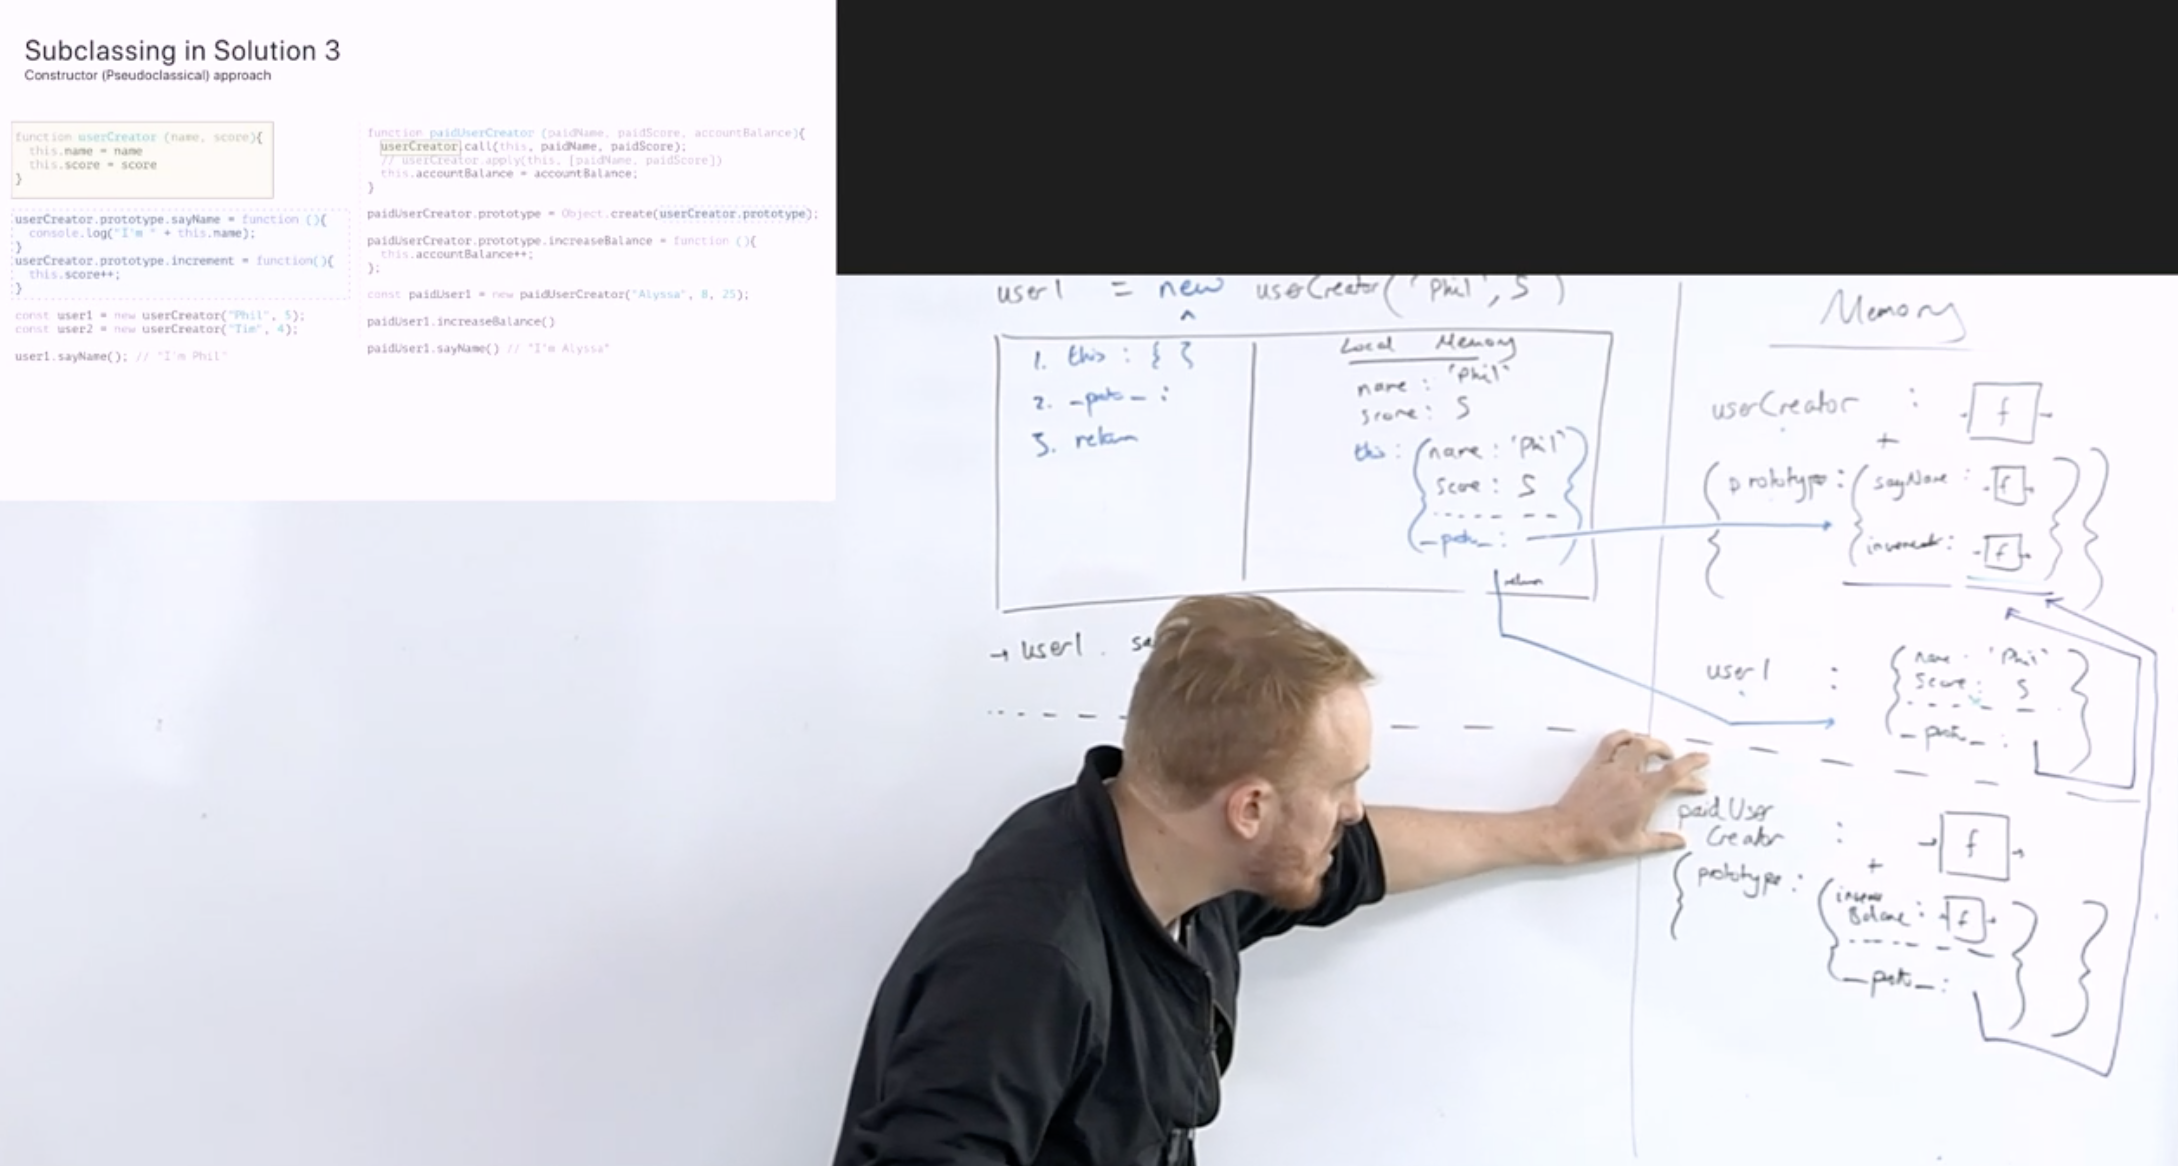 Subclassing in Solution 3
Constructor (Pseudoclassical) approach
function userCreator (name, score){
this.name = name
this.score = score
}
userCreator.prototype.sayName = function (){
console.log("I'm " + this.name);
}
userCreator.prototype.increment = function(){
this.score++;
}
const user1 = new userCreator("Phil", 5);
const user2 = new userCreator("Tim", 4);
user1.sayName(); // "I'm Phil"
function paidUserCreator (paidName, paidScore, accountBalance){
userCreator.call(this, paidName, paidScore);
// userCreator.apply(this, [paidName, paidScore])
this.accountBalance = accountBalance;
}
paidUserCreator.prototype = Object.create(userCreator.prototype);
paidUserCreator.prototype.increaseBalance = function (){
this.accountBalance++;
};
const paidUser1 = new paidUserCreator("Alyssa", 8, 25);
paidUser1.increaseBalance()
paidUser1.sayName() // "I'm Alyssa"
user1 = new userCreator('Phil', 5)
1. this : { }
2. _proto_ :
3. return
Local Memory
name : 'Phil'
score : 5
this : { name : 'Phil'
score : 5
_proto_ : }
return
→ user1 .
Memory
userCreator : f
+
{ prototype : { sayName : f
increment : f } }
user1 : { name : 'Phil'
score : 5
_proto_ : }
paidUser
Creator : f
+
{ prototype : {
Balance : f
_proto_ : } }